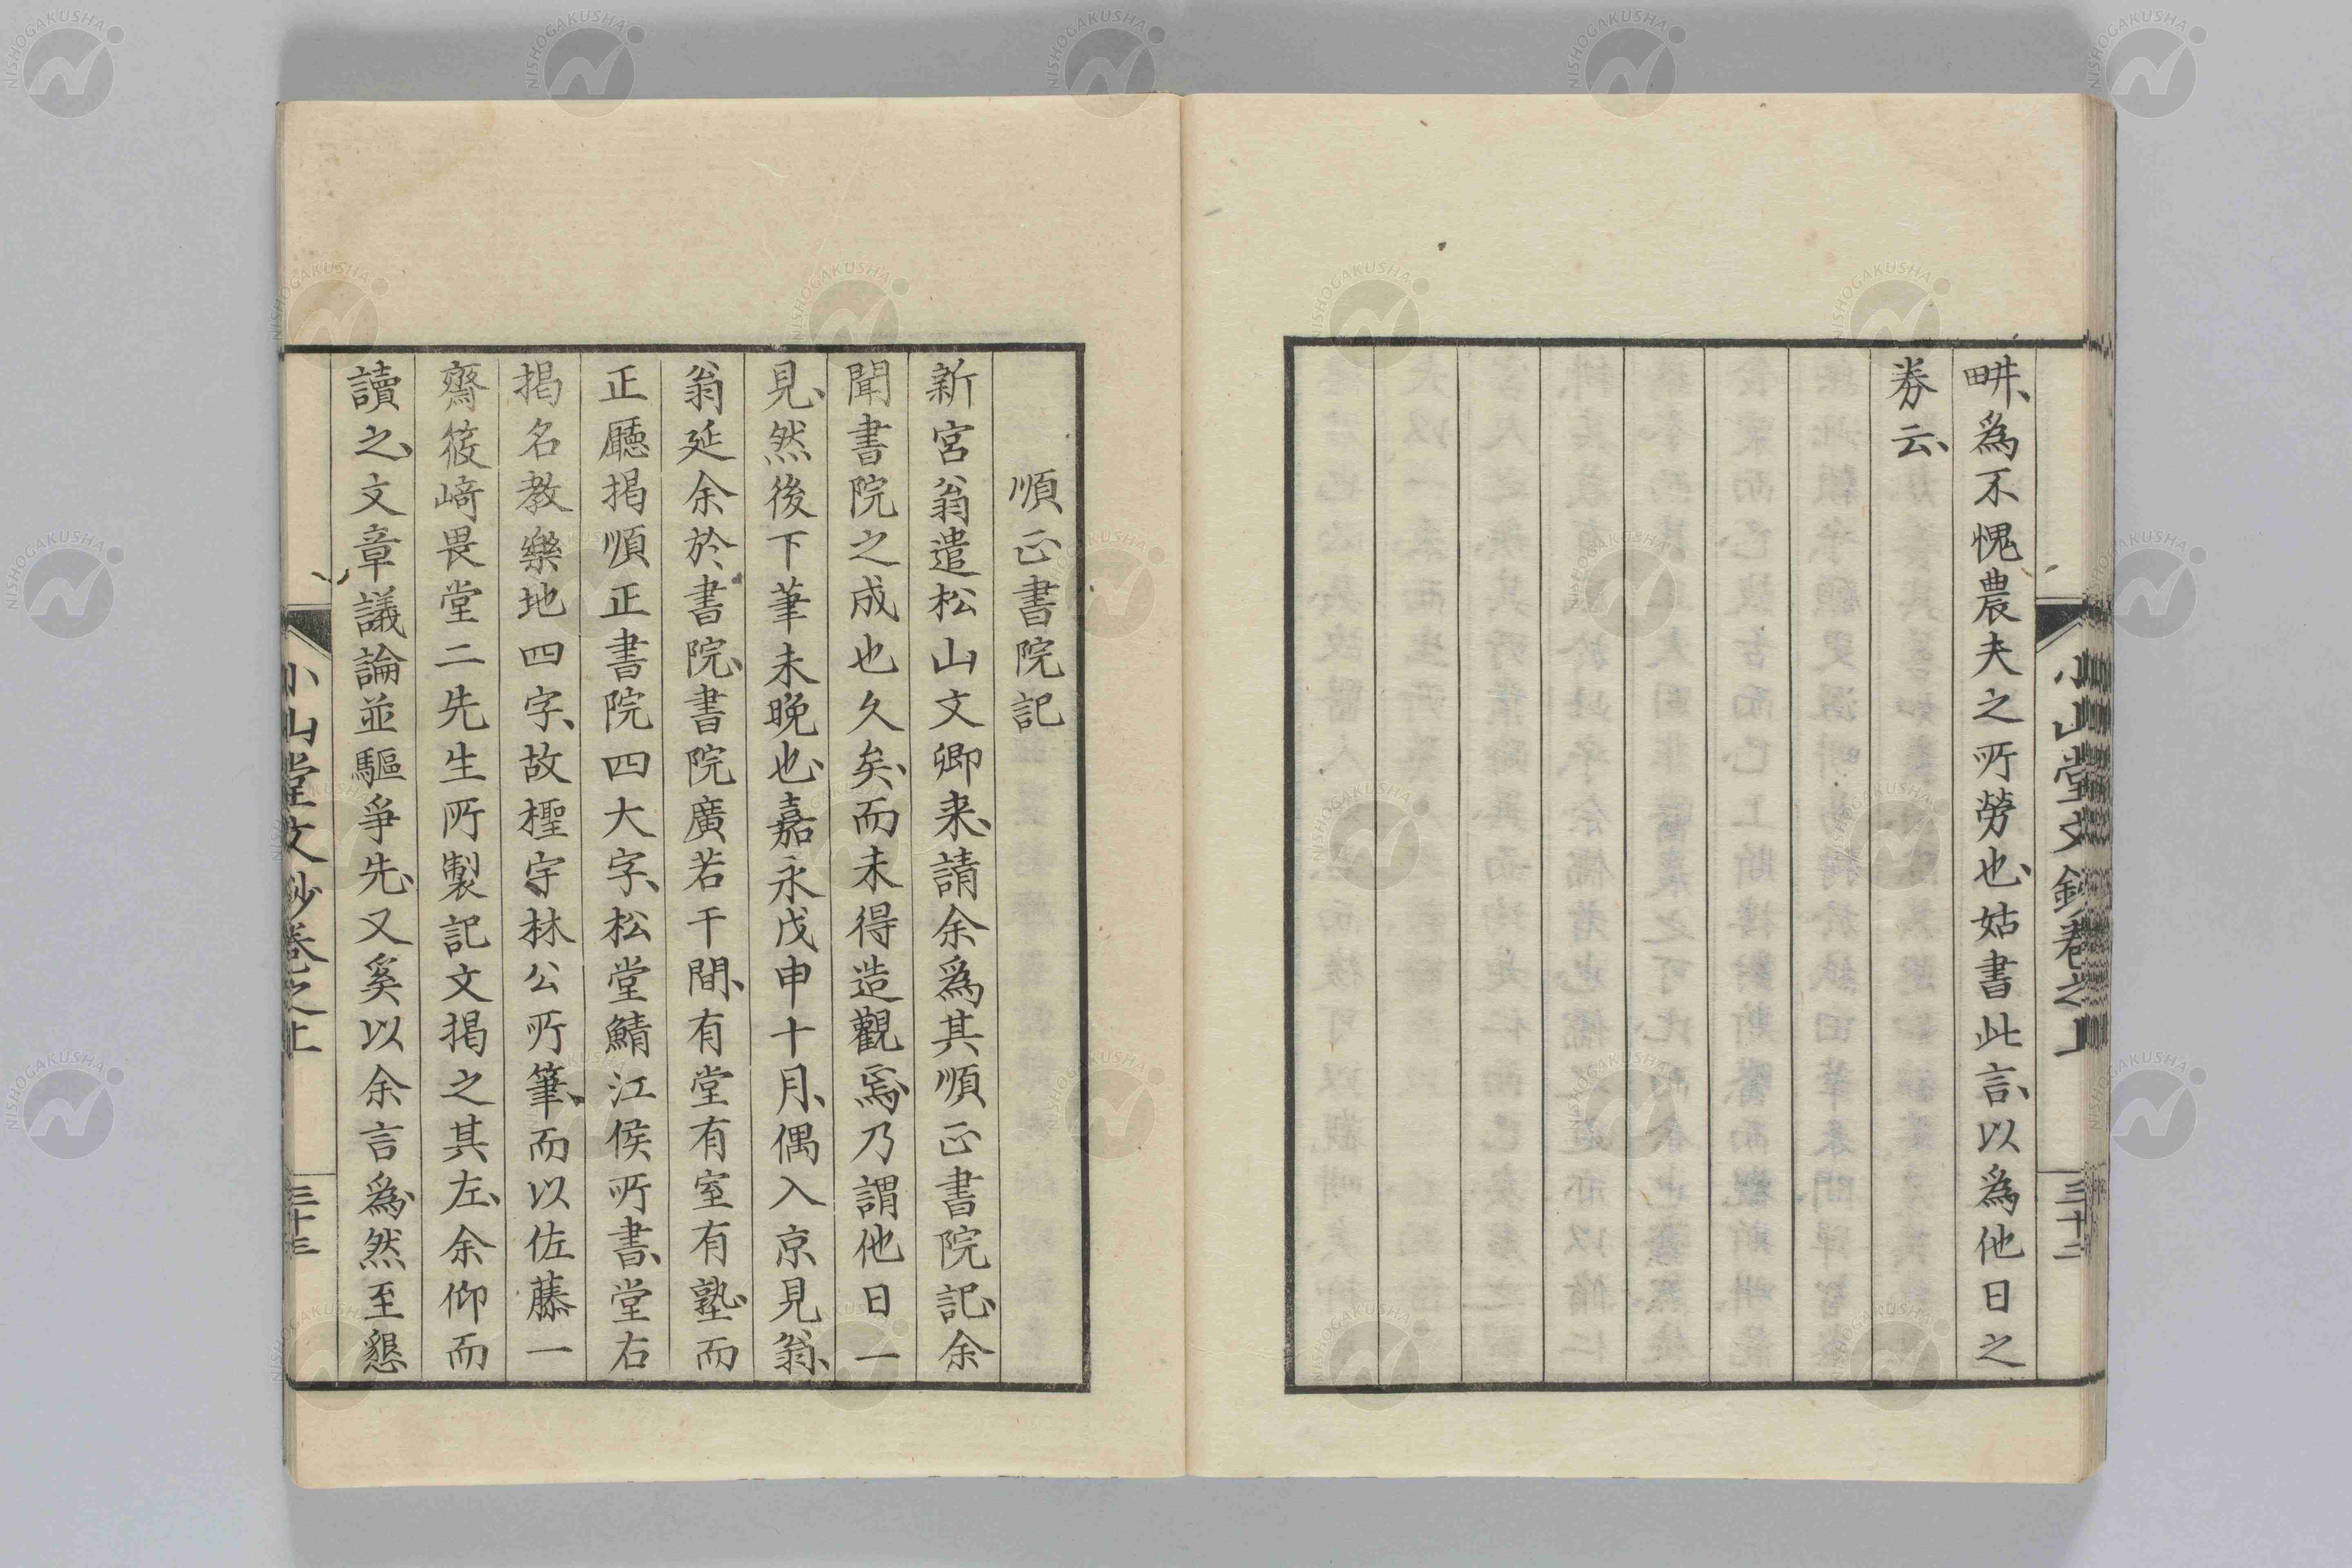 畊、為不愧農夫之所勞也、姑書此言、以為他日之
券云、
小山堂文鈔巻之上
三十二
順正書院記
新宮翁遣松山文卿来、請余為其順正書院記、余
聞書院之成也久矣、而未得造觀焉、乃謂他日一
見、然後下筆未晚也、嘉永戊申十月、偶入京見翁、
翁延余於書院、書院廣若干間、有堂有室有塾、而
正廳掲順正書院四大字、松堂鯖江侯所書、堂右
掲名教樂地四字、故檉宇林公所筆、而以佐藤一
齋筱﨑畏堂二先生所製記文掲之其左、余仰而
讀之、文章議論並驅爭先、又奚以余言為、然至懇
小山堂文鈔巻之上
三十三
NISHOGAKUSHA